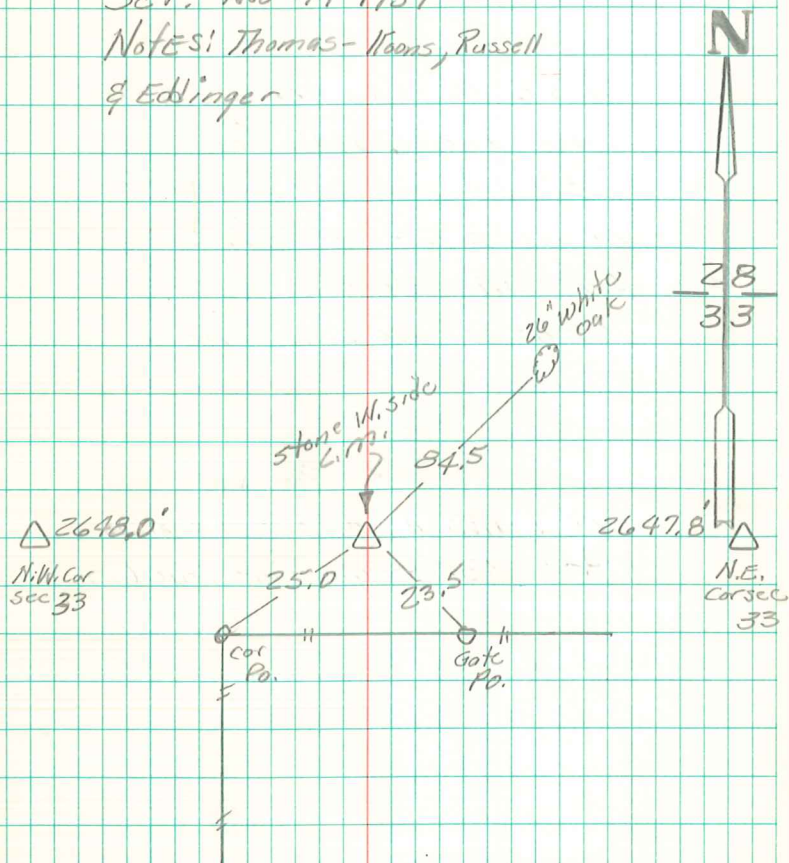 Notes: Thomas-Koons, Russell
& Eddinger
N
28
33
26" White
oak
Stone W. side
84.5
2648.0'
2647.8'
N.W. Cor
sec 33
25.0
23.5
N.E.
Cor sec
33
Cor
Po.
Gate
Po.